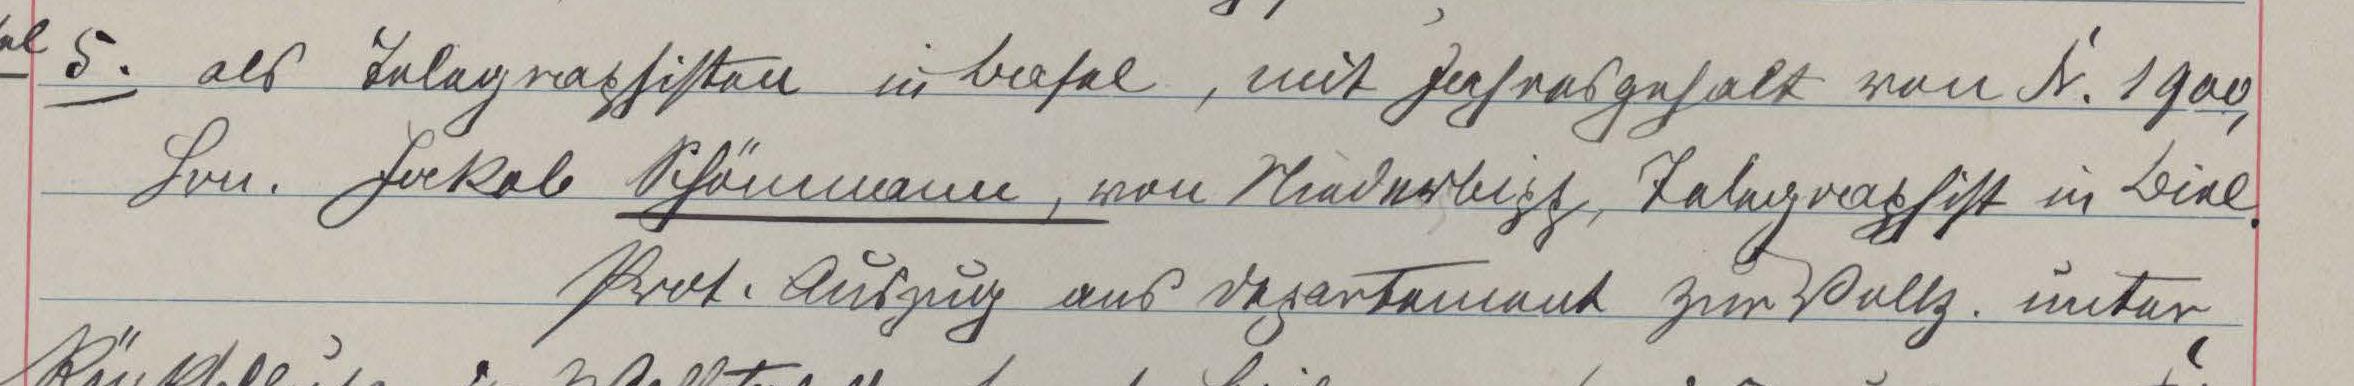 5. als Telegraphisten in Basel, mit Jahresgehalt von Fr. 1900,
Hrn. Jakob Schönmann, von Niederbipp, Telegraphist in Biel.
Prot. Auszug ans Departement zur Vollz. unter